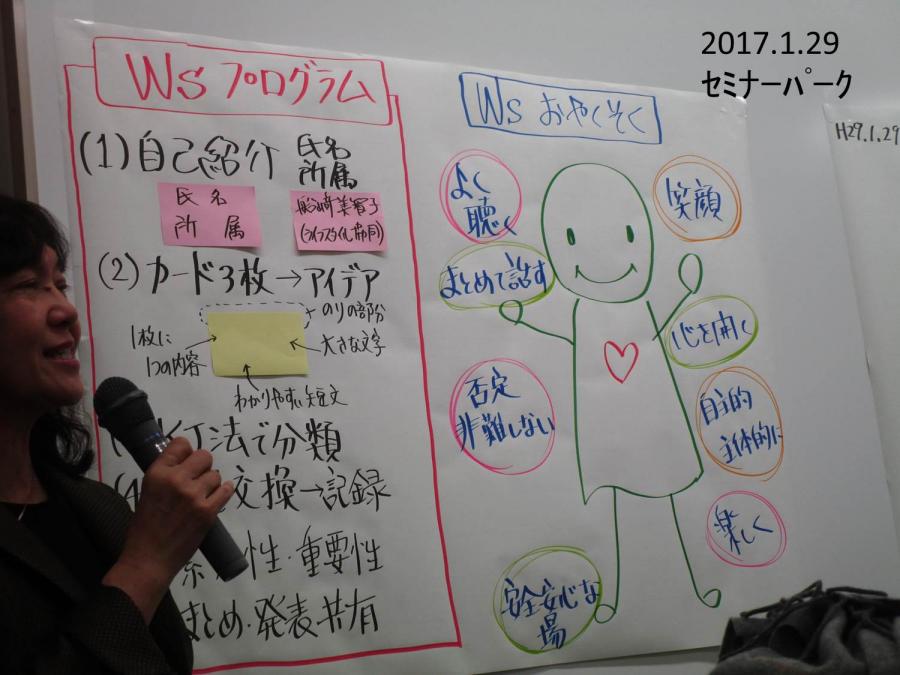 2017.1.29
ｾﾐﾅｰﾊﾟｰｸ
H29.1.29
Wsプログラム
(1)自己紹介 氏名
所属
氏名
所属
船崎美智子
(2)カード3枚→アイデア
のりの部分
1枚に
1つの内容
大きな文字
わかりやすい短文
KJ法で分類
交換→記録
性・重要性
まとめ・発表共有
Ws おやくそく
よく
聴く
笑顔
まとめて話す
心を開く
否定
非難しない
自主的
主体的に
楽しく
安全安心な
場